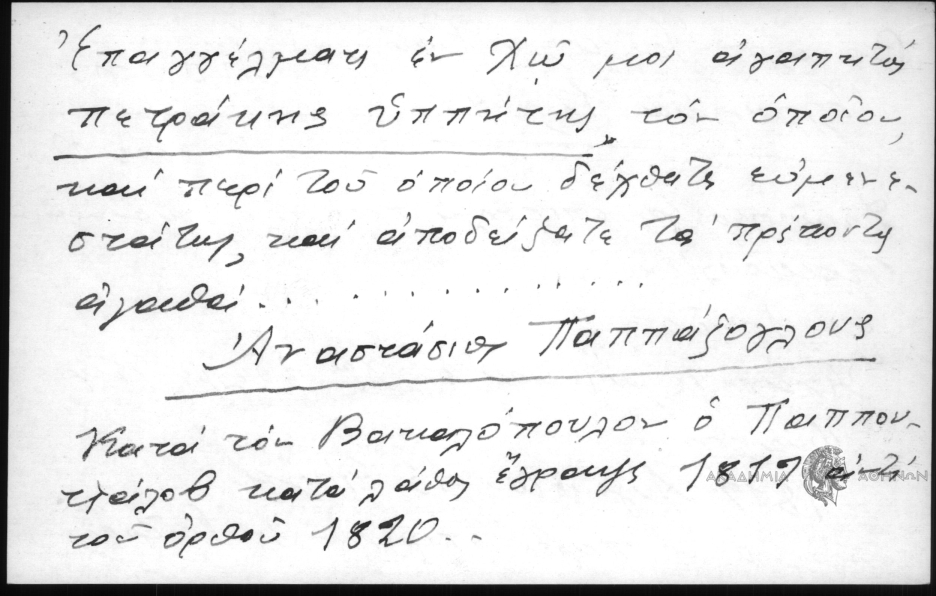 Ἐπαγγέλματι ἐν Χίῳ μοι ἀγαπητός
πετράκης ὑππήτης, τόν ὁποῖον,
καί περί τοῦ ὁποίου δέχθατε εὐμενε-
στάτως, καί ἀποδείξατε τά πρέποντα
ἀγαθαί . . . . . . . . . . . . . .
Ἀναστάσιος Παππάζογλους
Κατά τόν Βακαλόπουλον ὁ Παππου-
κατά λάθος ἔγραψε 1817 ἀντί
τοῦ ὀρθοῦ 1820 . .
ΑΚΑΔΗΜΙΑ ΑΘΗΝΩΝ